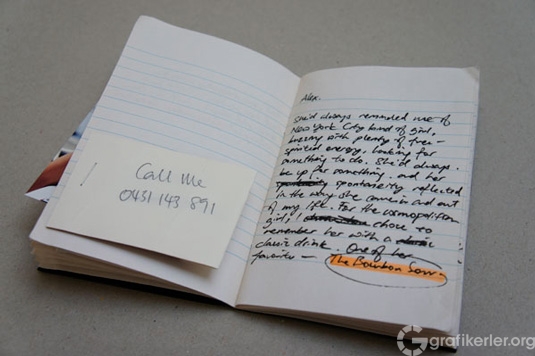 Call Me
0431 143 891
Alex.
She'd always reminded me of
New York City kind of girl,
buzzing with plenty of free-
spirited energy, looking for
something to do. She'd always
be up for something. and her
spontaneity reflected
in the way she came in and out
of my life. For the cosmopolitan
girl, I chose to
remember her with a
classic drink. One of her
favorite -
The Bourbon Sour.
grafikerler.org